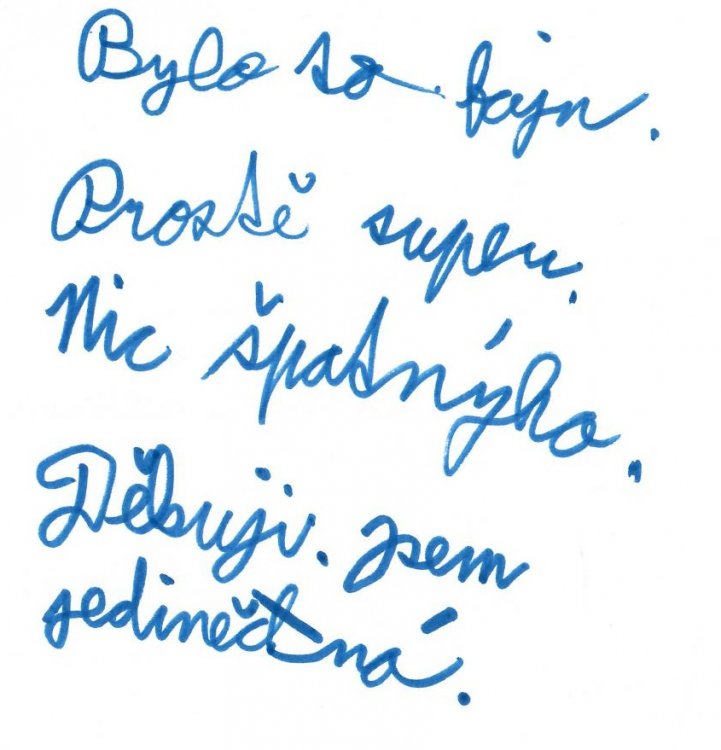 Bylo to fajn.
Prostě super.
Nic špatnýho.
Děkuji. Jsem
jedinečná.